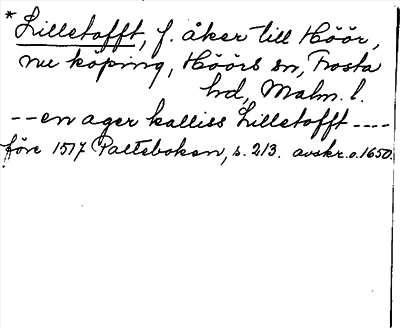 *Lilletofft, f. åker till Höör,
nu köping, Höörs sn, Frosta
hd, Malm. l.
-- en ager kalliss Lilletofft ----
före 1517 Palteboken, s. 213. avskr. o. 1650.